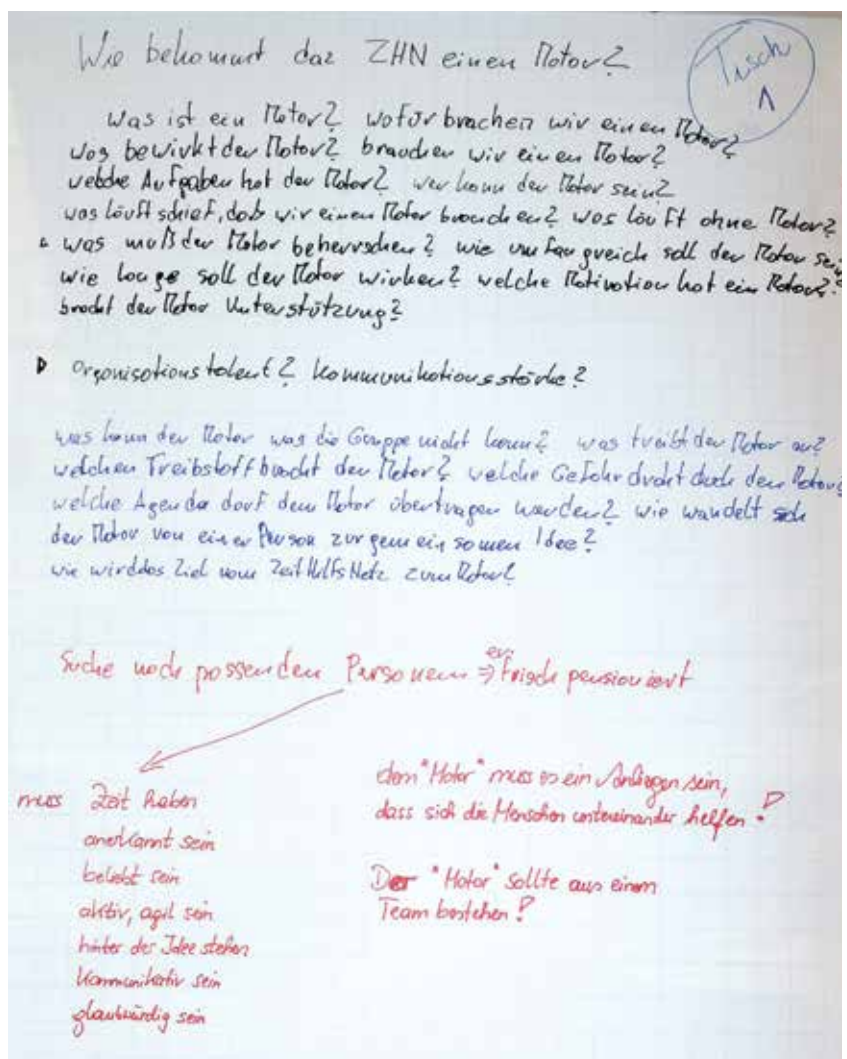 Wie bekommt das ZHN einen Motor?
Tisch
1
Was ist ein Motor? wofür brachen wir einen Motor?
was bewirkt der Motor? brauchen wir einen Motor?
welche Aufgaben hat der Motor? wer kann der Motor sein?
was läuft schief, daß wir einen Motor brauchen? was läuft ohne Motor?
was muß der Motor beherrschen? wie umfangreich soll der Motor sein?
wie lange soll der Motor wirken? welche Motivation hat ein Motor?
brocht der Motor Unterstützung?
Organisationstalent? Kommunikationsstärke?
was kann der Motor was die Gruppe nicht kann? was treibt der Motor an?
welchen Treibstoff brocht der Motor? welche Gefahr droht durch den Motor?
welche Agenda darf dem Motor übertragen werden? wie wandelt sich
der Motor von einer Person zur gemeinsamen Idee?
wie wird das Ziel vom ZeitHilfsNetz zum Motor?
Suche nach passenden Personen ⇒ evt. frisch pensioniert
muss Zeit haben
anerkannt sein
beliebt sein
aktiv, agil sein
hinter der Idee stehen
kommunikativ sein
glaubwürdig sein
dem "Motor" muss es ein Anliegen sein,
dass sich die Menschen untereinander helfen!
Der "Motor" sollte aus einem
Team bestehen!